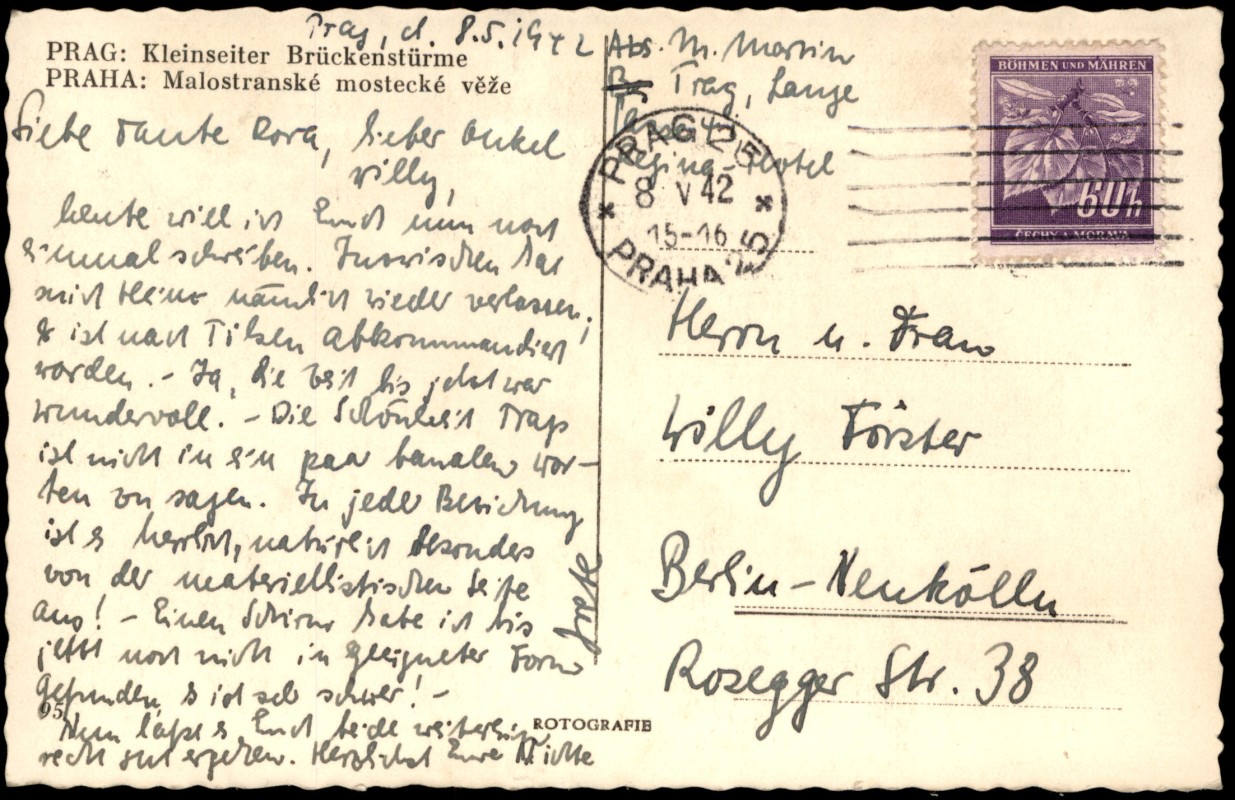 Prag, d. 8.5.1942
PRAG: Kleinseiter Brückenstürme
PRAHA: Malostranské mostecké věže
Liebe Tante Dora, lieber Onkel
Willy,
heute will ich Euch nun noch
einmal schreiben. Inzwischen hat
mich Heinz nämlich wieder verlassen,
er ist nach Pilsen abkommandiert
worden. - Ja, die Zeit bis jetzt war
wundervoll. - Die Schönheit Prags
ist nicht in ein paar banalen Wor-
ten zu sagen. In jeder Beziehung
ist es herrlich, natürlich besonders
von der materiellistischen Seite
aus! - Einen Schirm habe ich bis
jetzt noch nicht in geeigneter Form
gefunden, es ist seh schwer! -
95
Nun laßt es Euch beide weiterhin
recht gut ergehen. Herzlichst Eure Nichte
Grete
ROTOGRAFIE
Abs. M. Martin
Prag, Lange
Regina-Hotel
PRAG 25
8 V 42
15-16
PRAHA 25
BÖHMEN UND MÄHREN
60h
ČECHY A MORAVA
Herrn u. Frau
Willy Förster
Berlin-Neukölln
Rosegger Str. 38